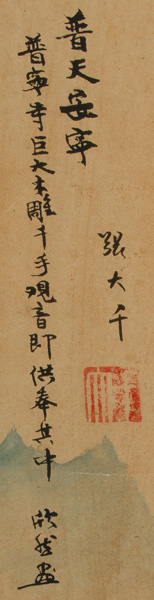 普天安寧
普寧寺巨大木雕千手觀音即供奉其中 欣然画
張大千